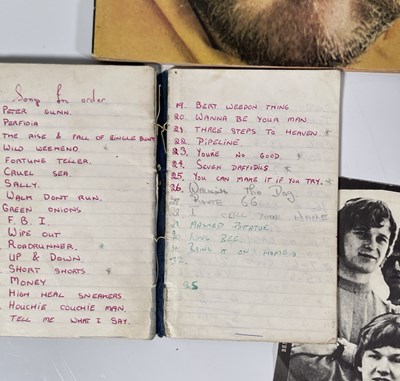 Song In order
PETER GUNN.
PERFIDIA
THE RISE & FALL OF BINGLE BUNT
WILD WEEKEND.
FORTUNE TELLER.
CRUEL SEA.
SALLY.
WALK DONT RUN.
GREEN ONIONS
F.B.I.
WIPE OUT
ROADRUNNER.
UP & DOWN.
SHORT SHORTS
MONEY
HIGH HEAL SNEAKERS.
HOUCHIE COUCHIE MAN.
TELL ME WHAT I SAY.
19. BERT WEEDON THING
20. WANNA BE YOUR MAN.
21. THREE STEPS TO HEAVEN
22. PIPELINE.
23. YOURE NO GOOD.
24. SEVEN DAFFYDILS
25. YOU CAN MAKE IT IF YOU TRY.
26. This Day
ROUTE 66.
I CALL YOUR NAME
MASHED POTATOE.
BEE
BRING IT ON HOME
32.
25